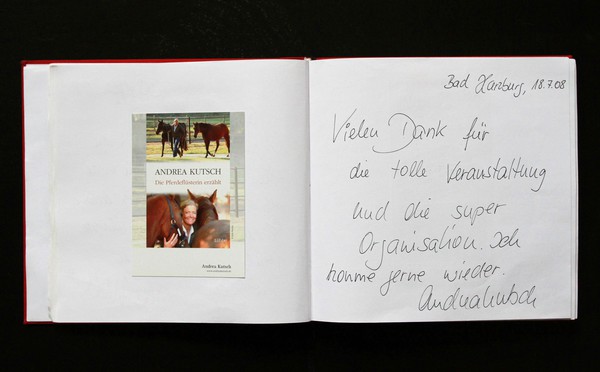 ANDREA KUTSCH
Die Pferdeflüsterin erzählt
Andrea Kutsch
Bad Harzburg, 18.7.08
Vielen Dank für
die tolle Veranstaltung
und die super
Organisation. Ich
komme gerne wieder.
Andrea Kutsch